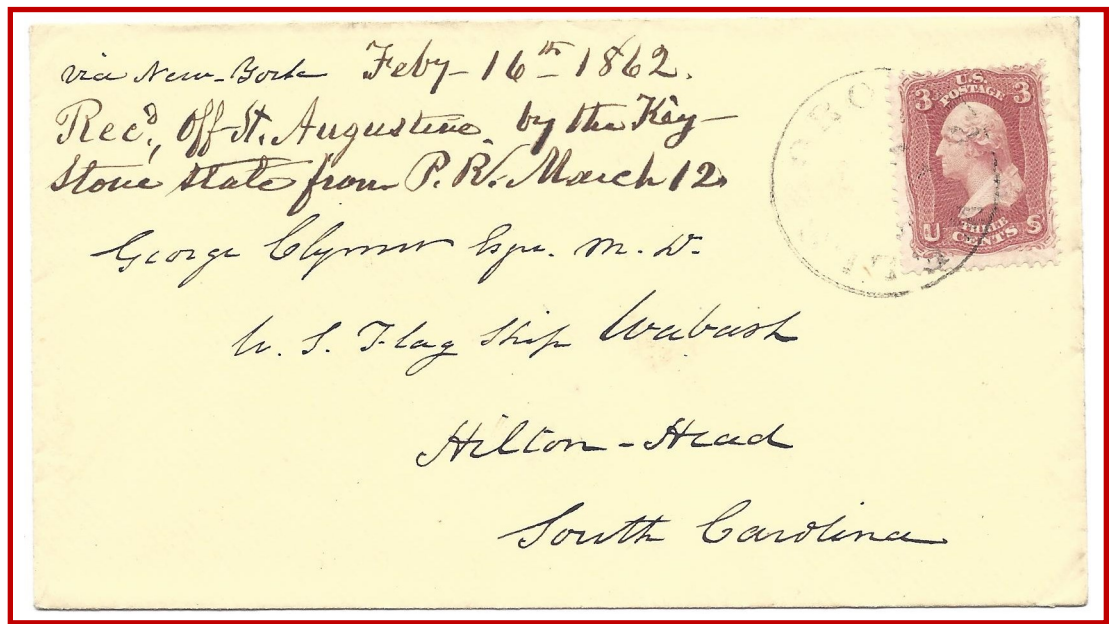 via New-York Feby- 16th 1862.
Recd, off St. Augustine, by the Key-
stone state from P. R. March 12.
George Clymer Esqu. M. D.
U. S. Flag Ship Wabash
Hilton-Head
South Carolina
U.S.
POSTAGE
3 3
U S
THREE
CENTS